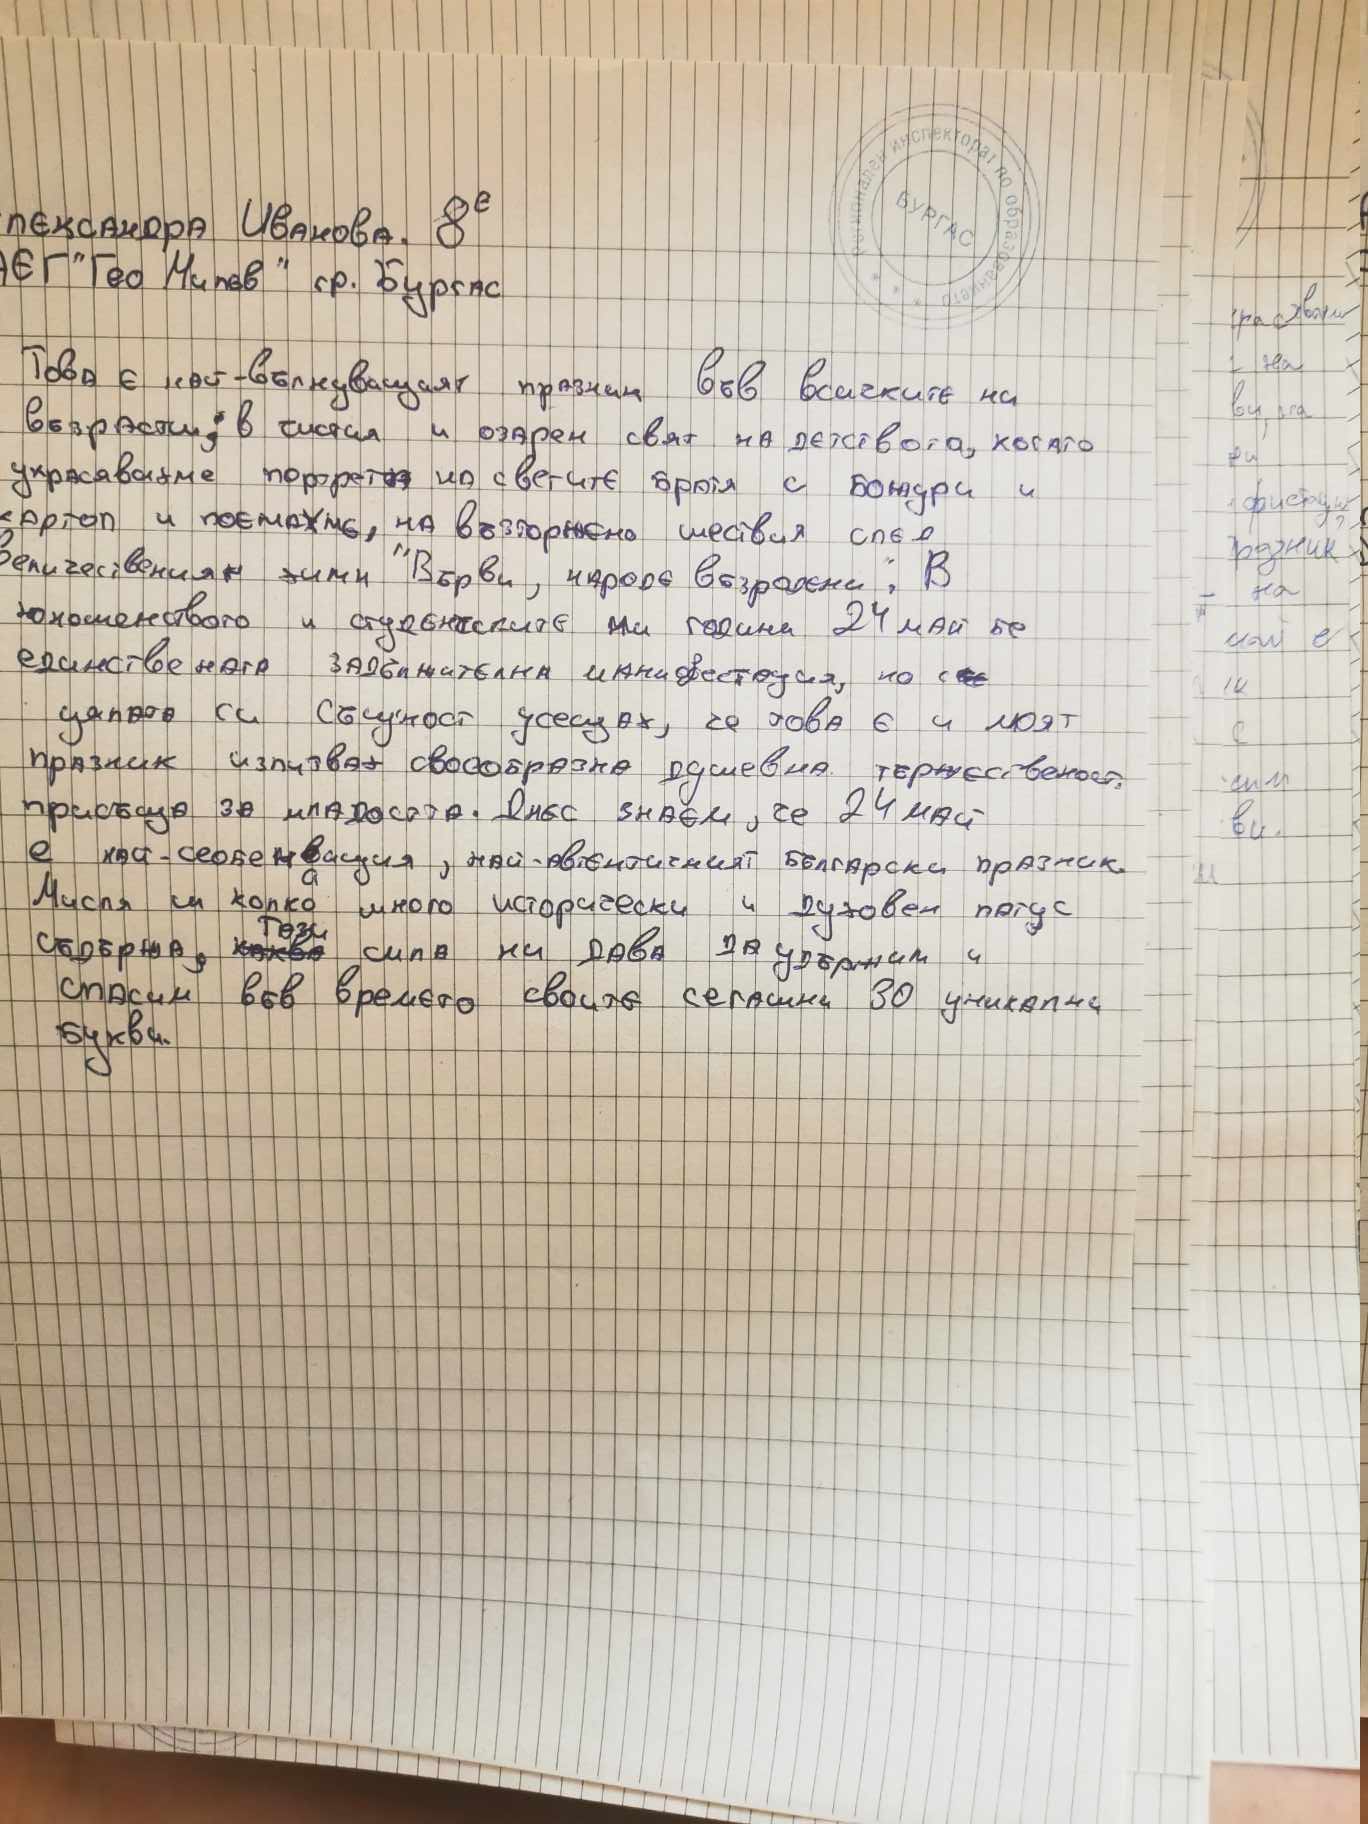 Регионален инспекторат по образованието
БУРГАС
лександра Иванова. 8е
АЕГ "Гео Милев" гр. Бургас
Това е най-вълнуващият празник във всичките ни
възрасти, в чистия и озарен свят на детството, когато
украсявахме портрета на светите братя с божури и
картоп и поемахме, на възторжено шествия след
величествения химн "Върви, народе възродени". В
юношенството и студентските ми години 24 май бе
единствената задължителна манифестация, но с
цялата си същност усещах, че това е и моят
празник изпитвах своообразна душевна тържественост,
присъща за младостта. Днес знаем, че 24 май
е най-сеобемващия, най-автентичният български празник.
Мисля си колко много исторически и духовен патус
съдържа, Тази сила ни дава да удържим и
спасим във времето своите сегашни 30 уникални
букви.
на
на
ви.